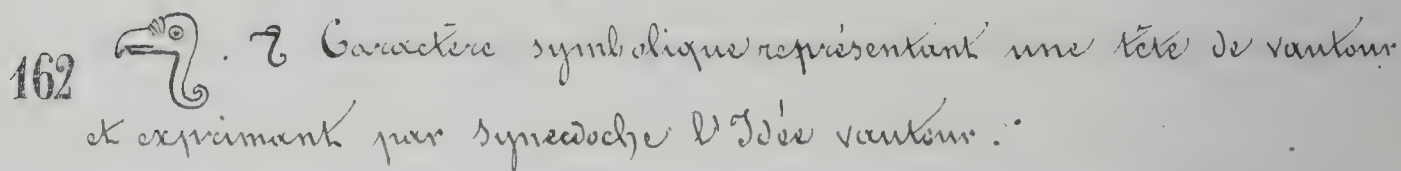 162 . Caractère symbolique représentant une tête de vautour
et exprimant par synecdoche l'Idée vautour.